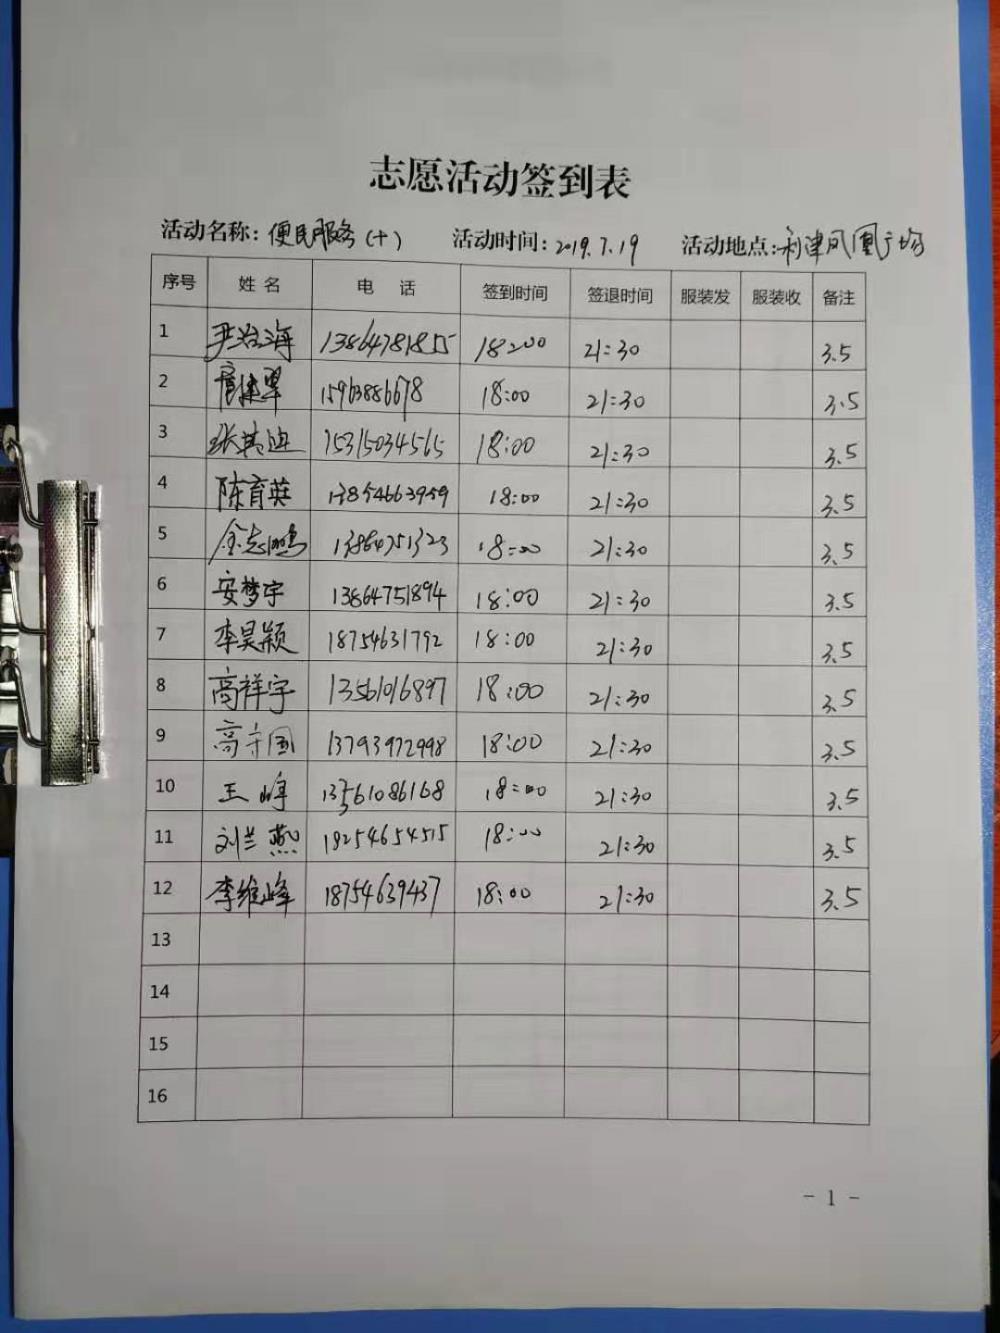 志愿活动签到表
活动名称：便民服务（十） 活动时间：2019.7.19 活动地点：利津凤凰广场
序号 姓名 电话 签到时间 签退时间 服装发 服装收 备注
1 尹治海 13864781855 18:00 21:30 3.5
2 15963886678 18:00 21:30 3.5
3 张其迪 15315034565 18:00 21:30 3.5
4 陈育英 13854663959 18:00 21:30 3.5
5 金志鹏 13864751323 18:00 21:30 3.5
6 安梦宇 13864751894 18:00 21:30 3.5
7 李昊颖 18754631792 18:00 21:30 3.5
8 高祥宇 13561016897 18:00 21:30 3.5
9 高守国 13793972998 18:00 21:30 3.5
10 王峰 13561086168 18:00 21:30 3.5
11 刘兰燕 18254654515 18:00 21:30 3.5
12 李维峰 18754639437 18:00 21:30 3.5
13
14
15
16
- 1 -